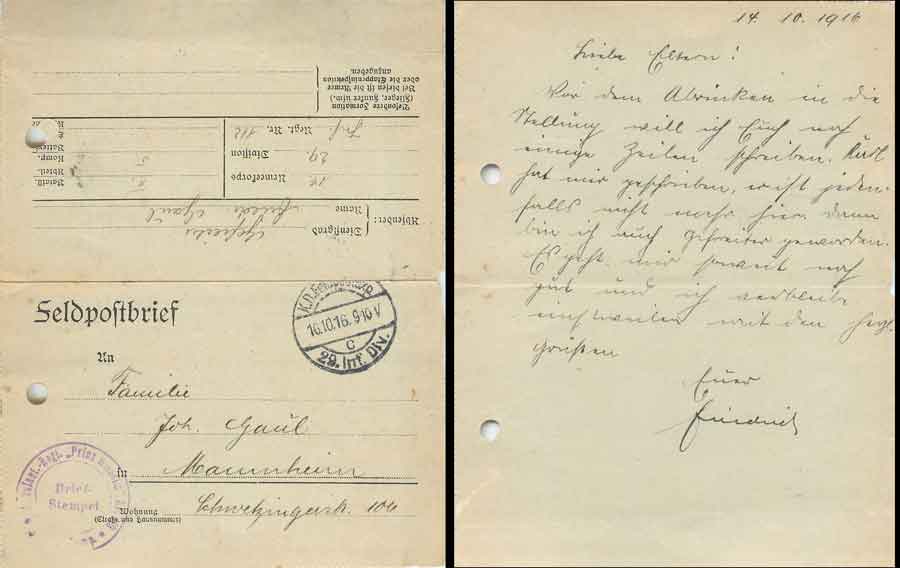 Besondere Formation
(Flieger, Funker usw.)
Bei diesen ist die Armee
oder die Etappeninspektion
anzugeben.
Regt. Nr. 112
Inf.
Division 29.
Armeekorps
Batail.
Abteil.
Komp.
Batterie
5.
Absender:
Dienstgrad Gefreiter
Name Gaul
Feldpostbrief
K.D. Feldpostexp.
16.10.16. 9-10 V
c
29. Inf. Div.
An
Familie
Joh. Gaul
in Mannheim
Wohnung Schwetzingerstr. 106
(Straße und Hausnummer)
Infant.-Regt. "Prinz
Brief-
Stempel
14. 10. 1916
Liebe Eltern!
Vor dem Abrücken in die
Stellung will ich Euch noch
einige Zeilen schreiben. Karl
hat mir geschrieben, er ist jeden-
falls nicht mehr hier, dann
bin ich auch Gefreiter geworden.
Es geht mir soweit noch
gut und ich verbleibe
einstweilen mit den herzl.
Grüßen
Euer
Friedrich